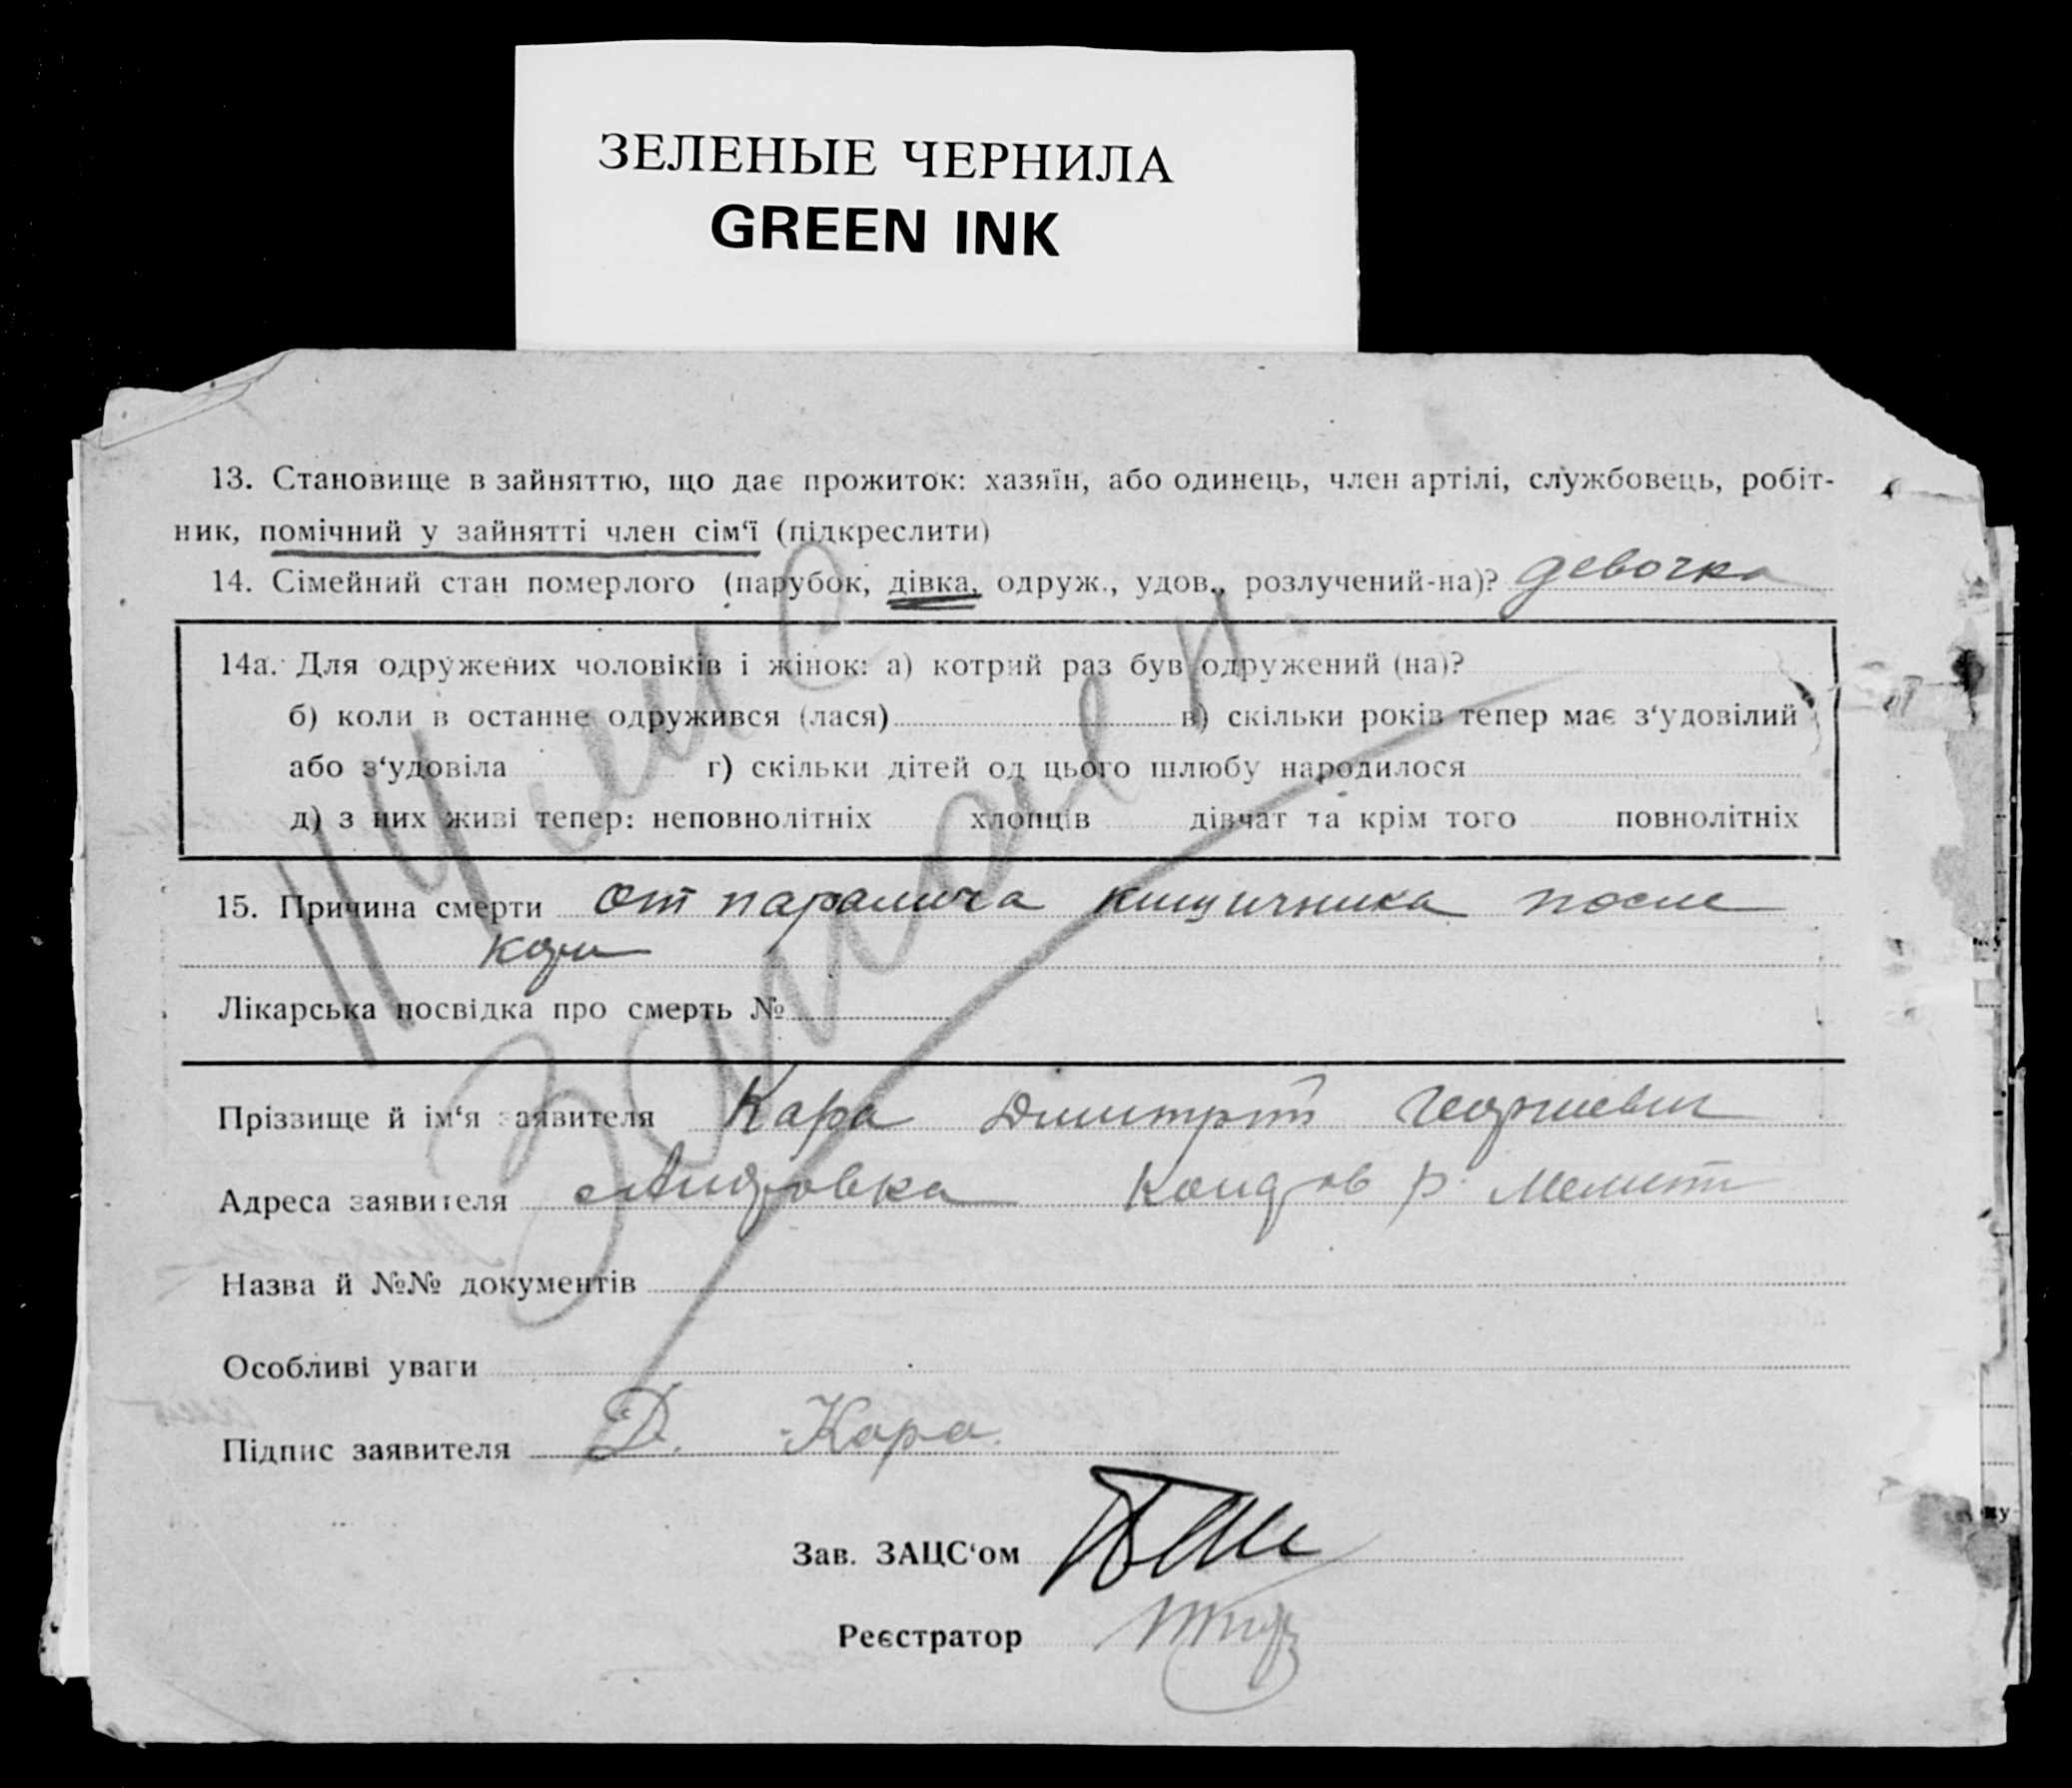 ЗЕЛЕНЫЕ ЧЕРНИЛА
GREEN INK
13. Становище в зайняттю, що дає прожиток: хазяїн, або одинець, член артілі, службовець, робіт-
ник, помічний у зайнятті член сім‘ї (підкреслити)
14. Сімейний стан померлого (парубок, дівка, одруж., удов., розлучений-на)? девочка
14а. Для одружених чоловіків і жінок: а) котрий раз був одружений (на)?
б) коли в останнє одружився (лася) в) скільки років тепер має з‘удовілий
або з‘удовіла г) скільки дітей од цього шлюбу народилося
д) з них живі тепер: неповнолітніх хлопців дівчат та крім того повнолітніх
15. Причина смерти от паралича кишичника после
кори
Лікарська посвідка про смерть №
Прізвище й ім‘я заявителя Кара Дмитрий Георгиевич
Адреса заявителя р. Мелит
Назва й №№ документів
Особливі уваги
Підпис заявителя Д. Кара.
Зав. ЗАЦС‘ом
Реєстратор